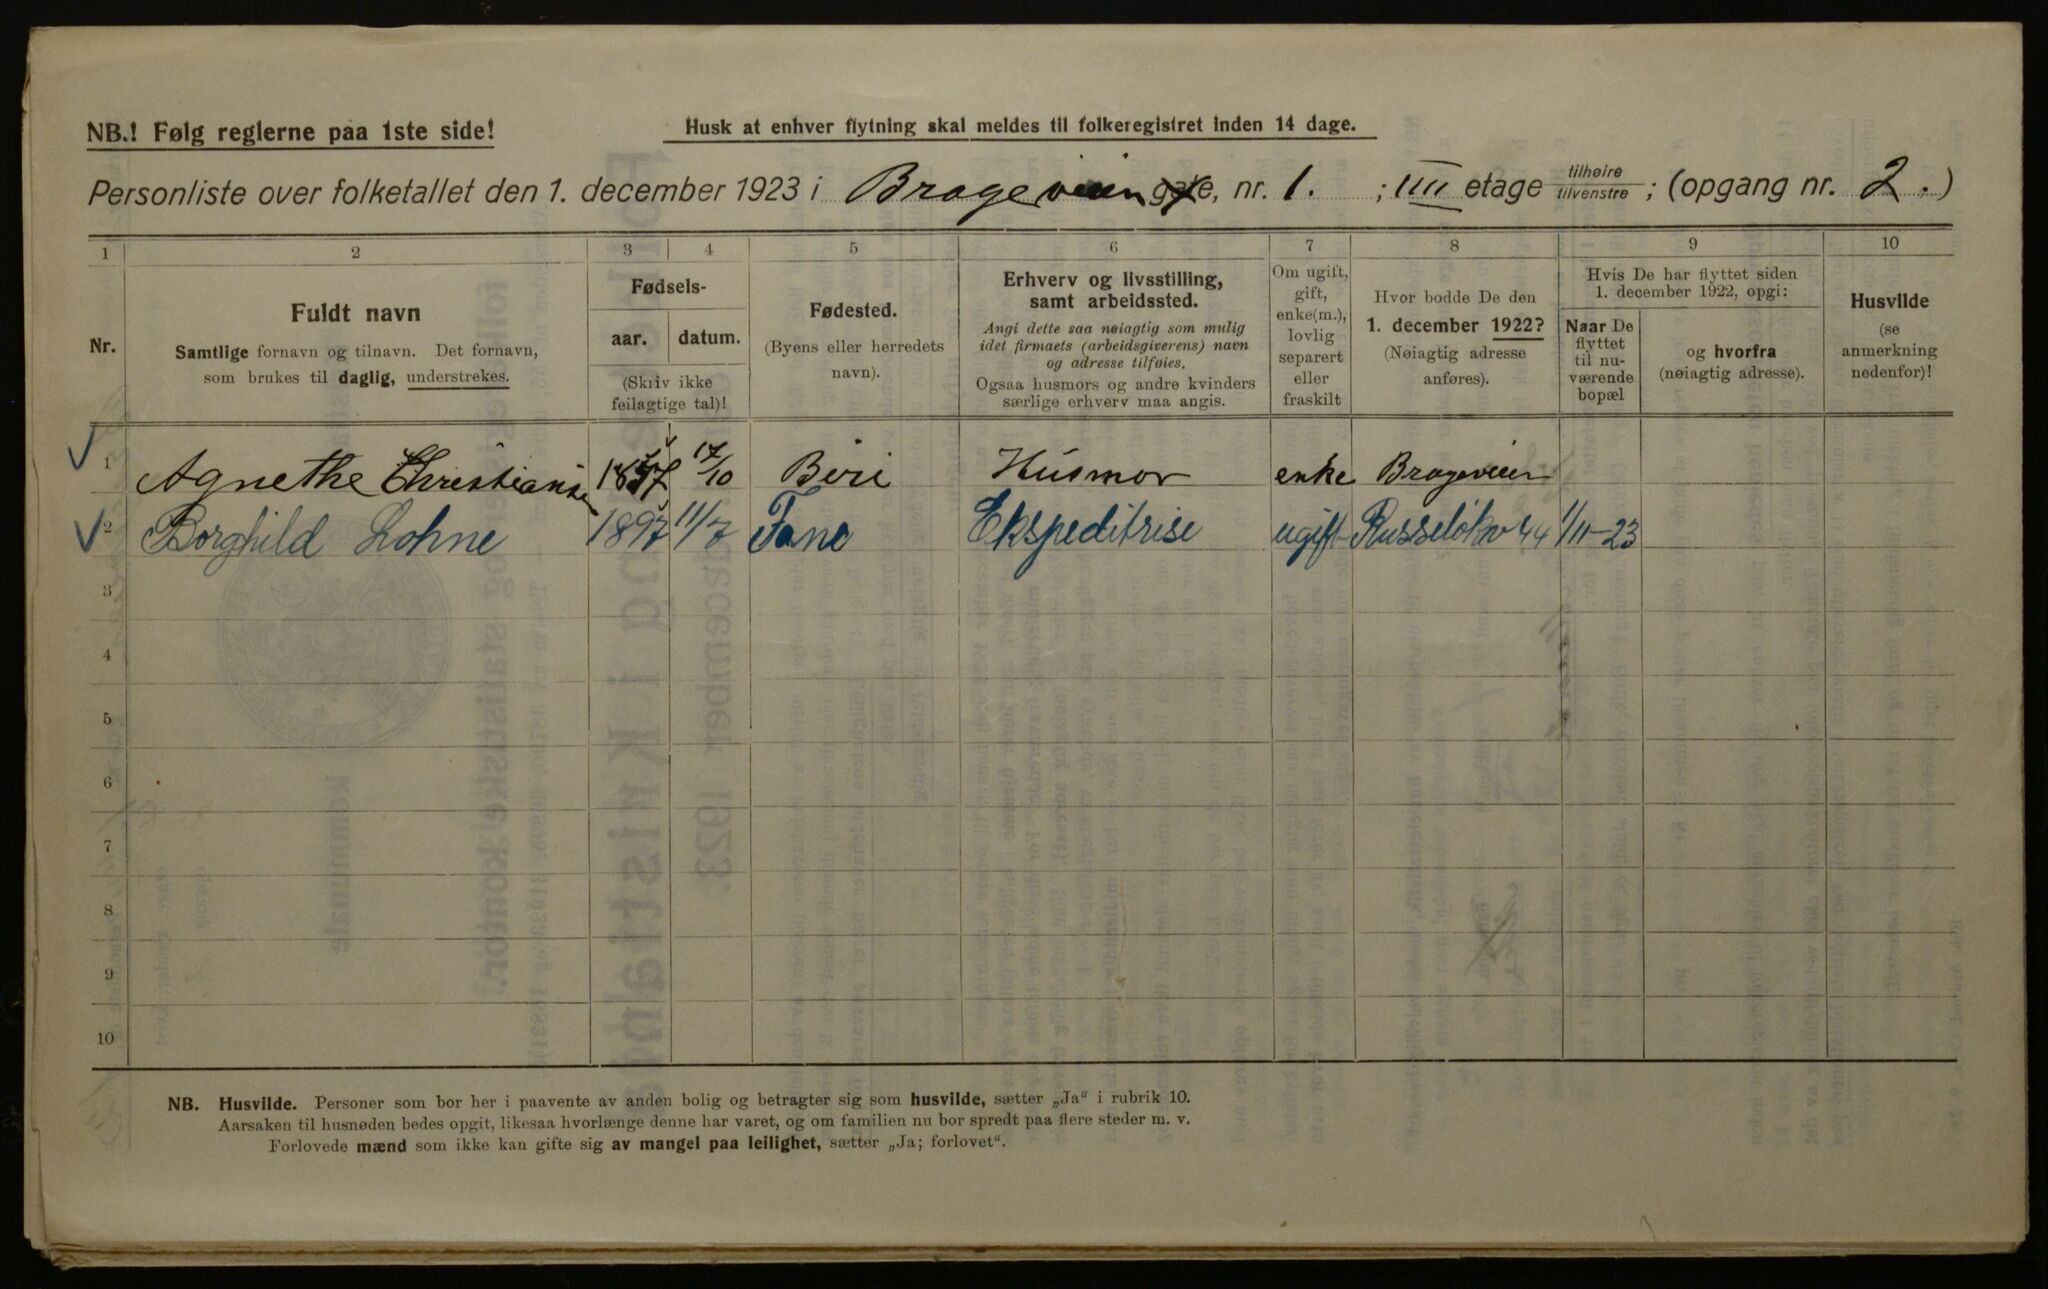 NB.! Følg reglerne paa 1ste side!
Husk at enhver flytning skal meldes til folkeregistret inden 14 dage.
Personliste over folketallet den 1. december 1923 i Brageveien gate, nr. 1. ; IIII etage tilhøire tilvenstre ; (opgang nr. 2.)
1 2 3 4 5 6 7 8 9 10
Nr.
Fuldt navn
Samtlige fornavn og tilnavn. Det fornavn,
som brukes til daglig, understrekes.
Fødsels-
aar. datum.
(Skriv ikke
feilagtige tal)!
Fødested.
(Byens eller herredets
navn).
Erhverv og livsstilling,
samt arbeidssted.
Angi dette saa nøiagtig som mulig
idet firmaets (arbeidsgiverens) navn
og adresse tilføies.
Ogsaa husmors og andre kvinders
særlige erhverv maa angis.
Om ugift,
gift,
enke(m.),
lovlig
separert
eller
fraskilt
Hvor bodde De den
1. december 1922?
(Nøiagtig adresse
anføres).
Hvis De har flyttet siden
1. december 1922, opgi:
Naar De
flyttet
til nu-
værende
bopæl
og hvorfra
(nøiagtig adresse).
Husvilde
(se
anmerkning
nedenfor)!
1 Agnethe Christiansen 1857 17/10 Biri Husmor enke Brageveien
2 Borghild Lohne 1897 11/7 Fane Ekspeditrise ugift Russeløkv 44 1/11-23
3
4
5
6
7
8
9
10
NB. Husvilde. Personer som bor her i paavente av anden bolig og betragter sig som husvilde, sætter „Ja“ i rubrik 10.
Aarsaken til husnøden bedes opgit, likesaa hvorlænge denne har varet, og om familien nu bor spredt paa flere steder m. v.
Forlovede mænd som ikke kan gifte sig av mangel paa leilighet, sætter „Ja; forlovet“.